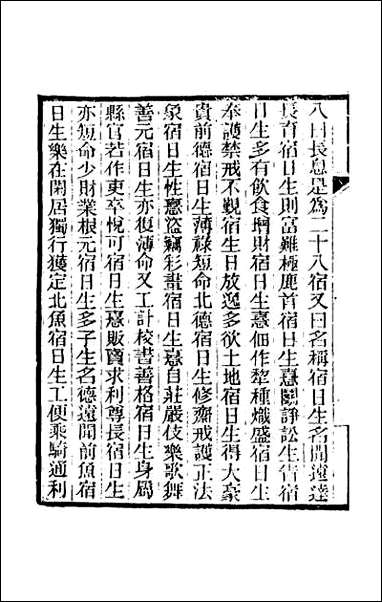 八曰長息是為二十八宿又曰名稱宿日生名聞遠達
長育宿日生則富雖極鹿首宿日生憙鬪諍訟生眚宿
日生多有飲食增財宿日生憙佃作犁種熾盛宿日生
奉護禁戒不覲宿生日放逸多欲土地宿日生得大豪
貴前德宿日生薄祿短命北德宿日生修齋戒護正法
象宿日生性憙盜竊彩畫宿日生憙自莊嚴伎樂歌舞
善元宿日生亦復薄命又工計校書善格宿日生身屬
縣官若作吏卒悅可宿日生憙販賣求利尊長宿日生
亦短命少財業根元宿日生多子生名德遠聞前魚宿
日生樂在閑居獨行獲定北魚宿日生工便乘騎通利